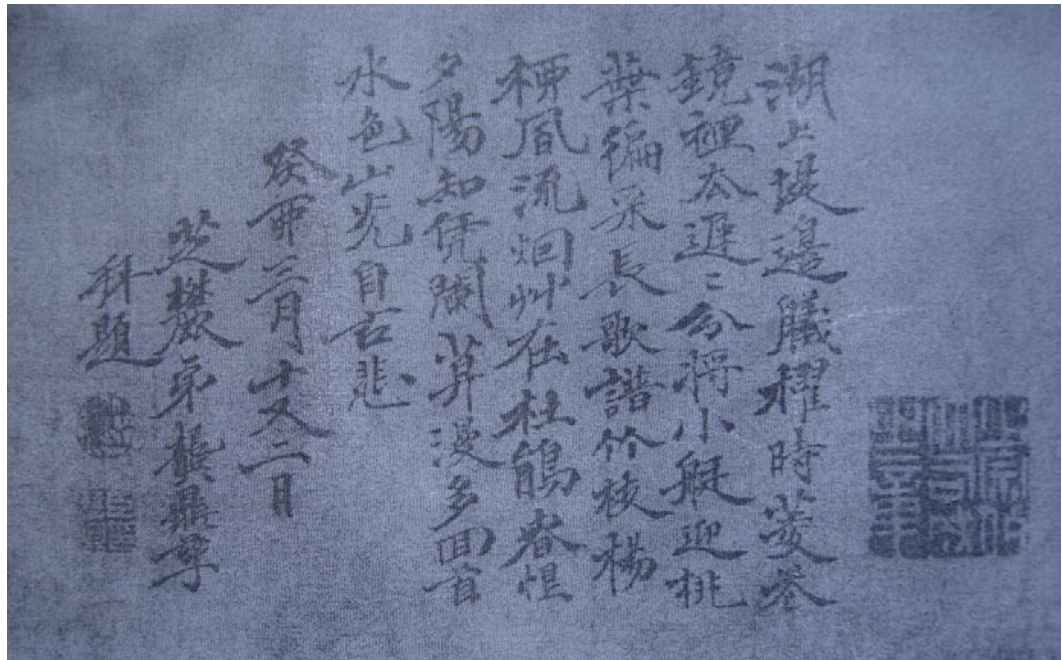 湖上堤邊艤櫂時菱花
鏡裡去遲〻分將小艇迎桃
葉徧采長歌譜竹枝楊
柳風流烟艸在杜鵑春恨
夕陽知凭闌莫漫多回首
水色山光自古悲
癸卯三月十又二日
芝麓弟龔鼎孳
拜題